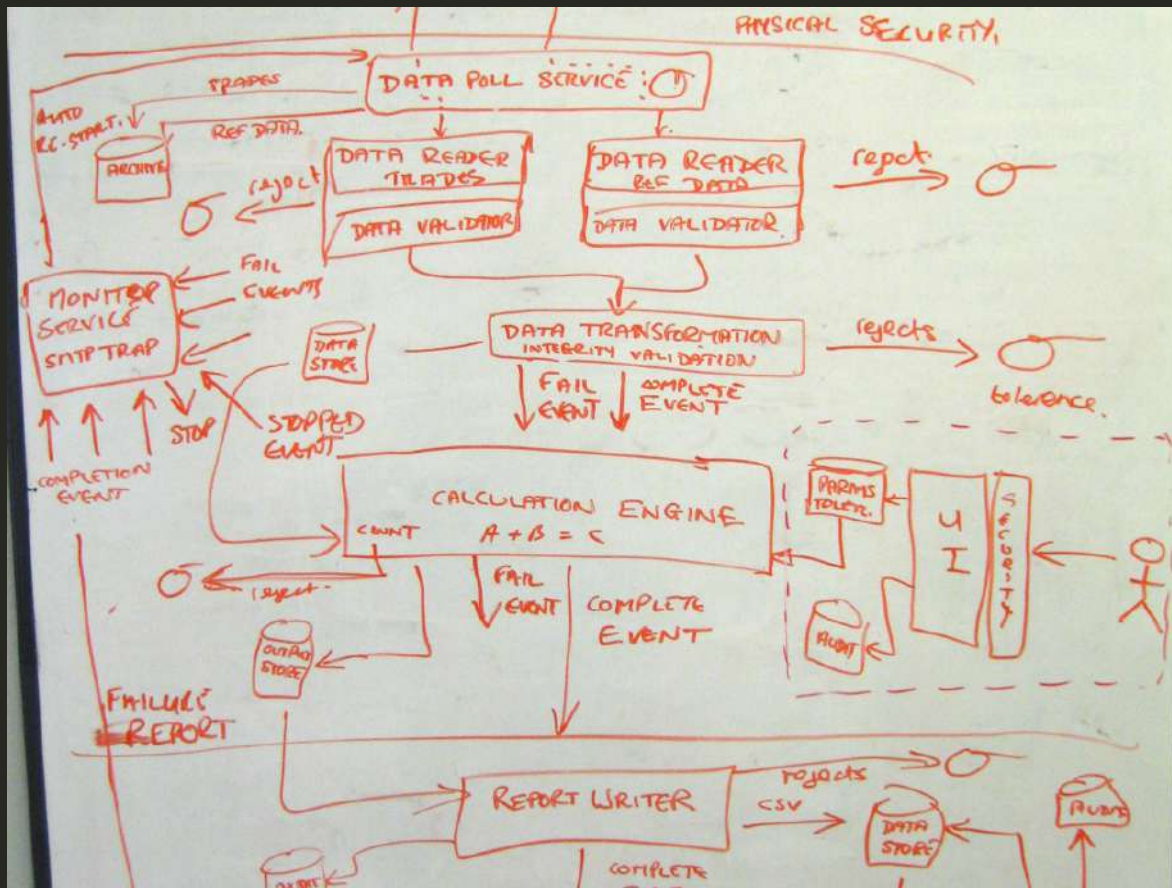 PHYSICAL SECURITY.
DATA POLL SERVICE
TRADES
AUTO
RE.START.
REF DATA.
ARCHIVE
DATA READER
TRADES
DATA VALIDATOR
reject
DATA READER
REF DATA
DATA VALIDATOR.
reject.
FAIL
EVENTS
MONITOR
SERVICE
SNTP TRAP
DATA
STORE
DATA TRANSFORMATION
INTEGRITY VALIDATION
rejects
tolerence.
FAIL
EVENT
COMPLETE
EVENT
STOP
STOPPED
EVENT
COMPLETION
EVENT
CALCULATION ENGINE
COUNT
A + B = C
PARAMS
TOLER.
UI
SECURITY
AUDIT
reject.
FAIL
EVENT
COMPLETE
EVENT
OUTPUT
STORE
FAILURE
REPORT
REPORT WRITER
rejects
CSV
DATA
STORE
AUDIT
AUDIT
COMPLETE